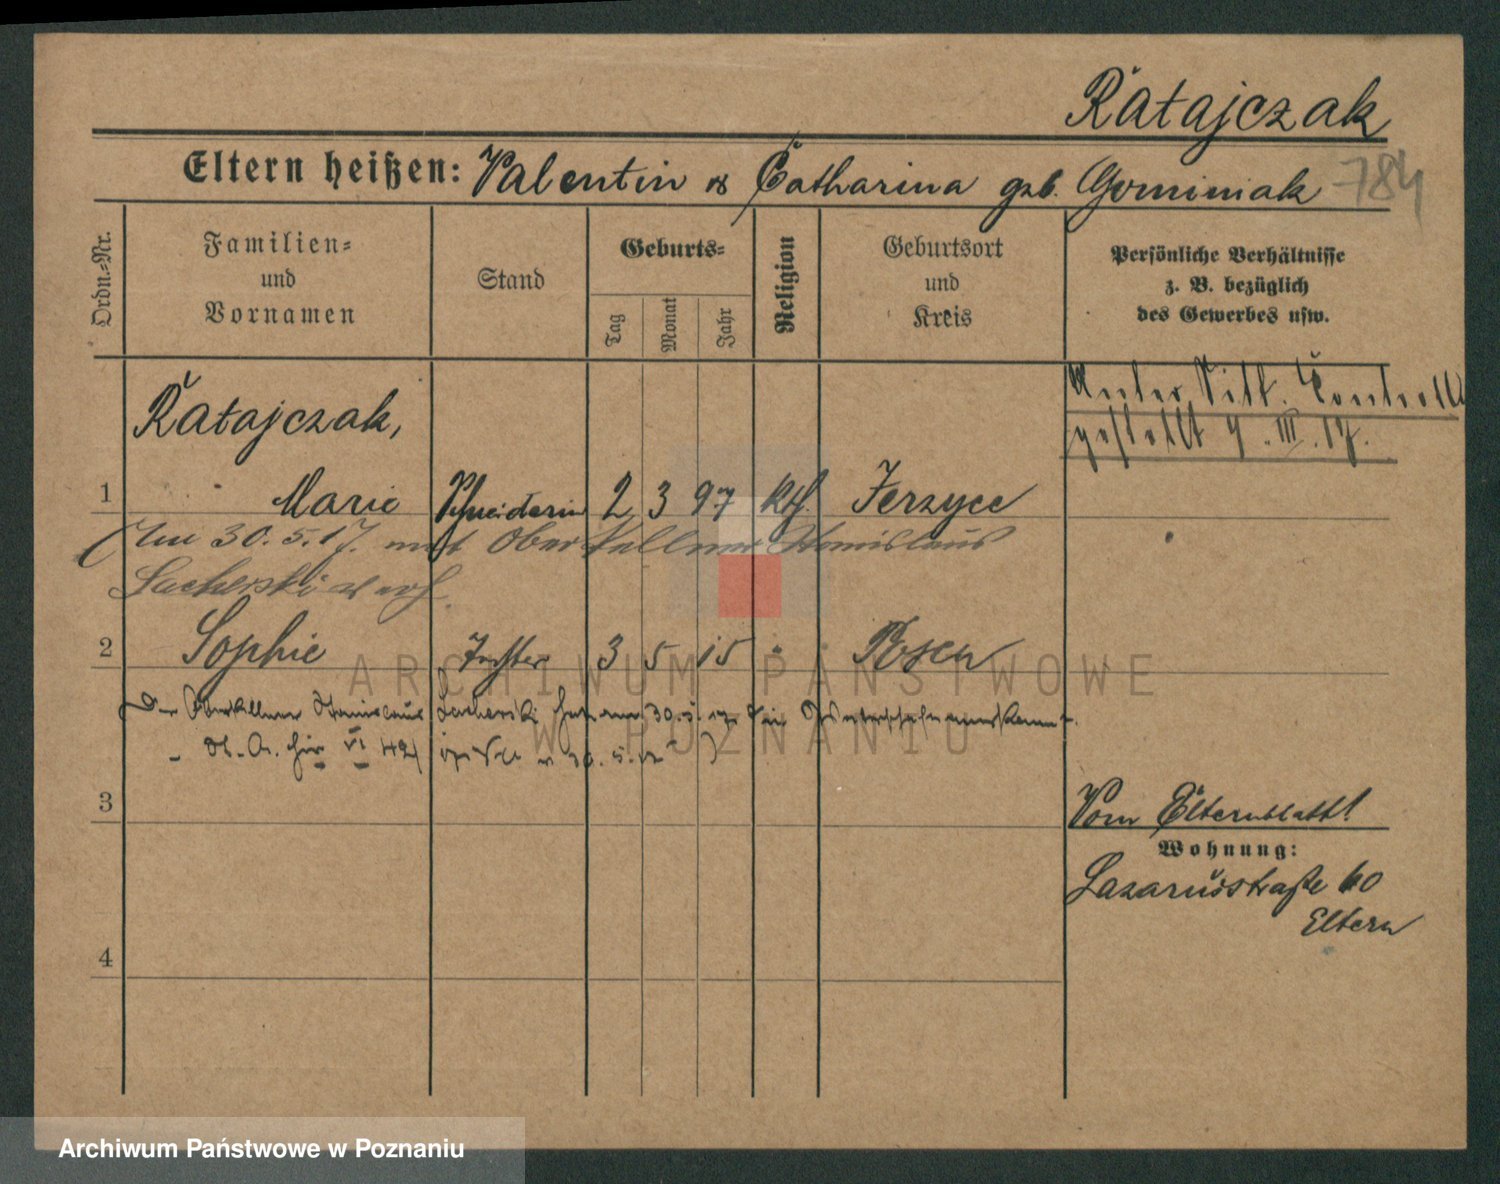 Ratajczak
Eltern heißen: Valentin & Catharina geb. Gominiak 784
Ordn.-Nr.
Familien-
und
Vornamen
Stand
Geburts-
Tag
Monat
Jahr
Religion
Geburtsort
und
Kreis
Persönliche Verhältnisse
z. B. bezüglich
des Gewerbes usw.
Unter Sitt. Controlle
gestellt 9. III. 17.
Ratajczak,
1 Marie Schneiderin 2 3 97 kth. Jerzyce
Am 30. 5. 17. mit Oberkellner Stanislaus
Lacherski verh.
2 Sophie Tochter 3 5 15 " Posen
Der Oberkellner Stanislaus Lacherski hat am 30. 5. 17 die
St. A. hier VI 421
3
Vom Elternblatt!
Wohnung:
Lazarusstraße 60
Eltern
4
ARCHIWUM PAŃSTWOWE
W POZNANIU
Archiwum Państwowe w Poznaniu